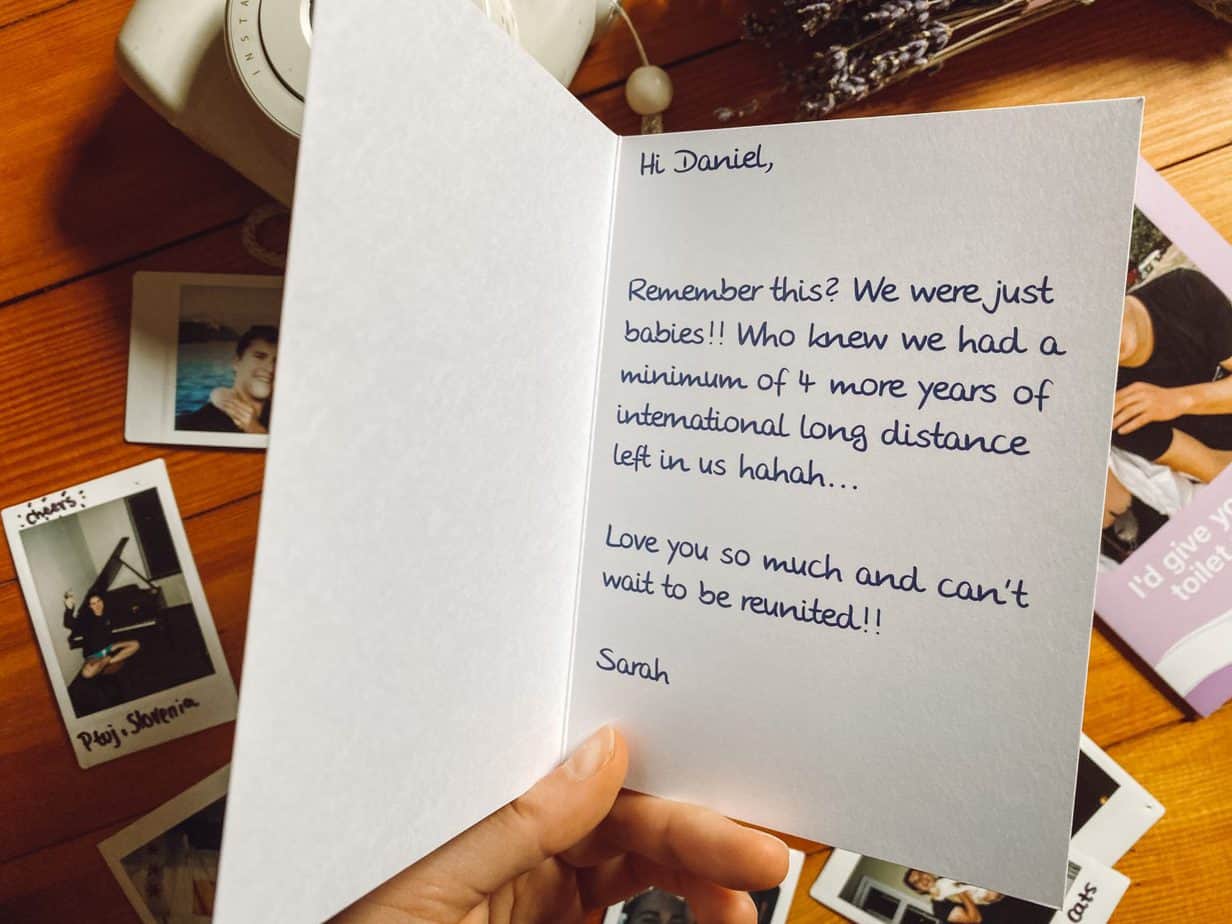 INSTA
Hi Daniel,
Remember this? We were just
babies!! Who knew we had a
minimum of 4 more years of
international long distance
left in us hahah...
Love you so much and can't
wait to be reunited!!
Sarah
cheers
Ptuj, Slovenia
I'd give yo
toilet
cats